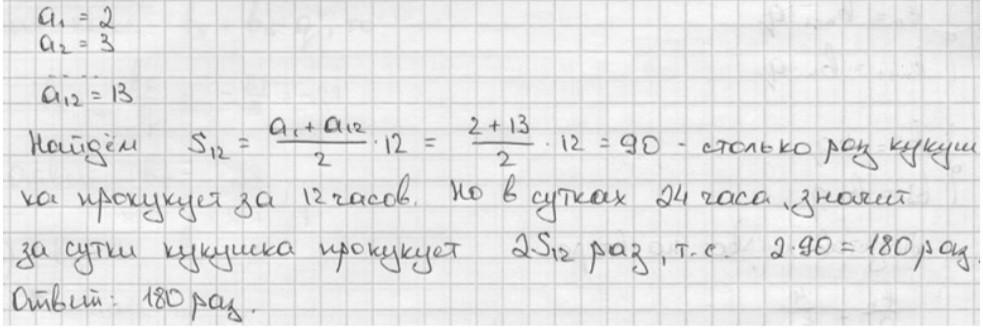 a₁ = 2
a₂ = 3
.....
a₁₂ = 13
Найдём S₁₂ = (a₁ + a₁₂)/2 · 12 = (2 + 13)/2 · 12 = 90 - столько раз кукуш
ка прокукует за 12 часов. Но в сутках 24 часа, значит
за сутки кукушка прокукует 2S₁₂ раз, т.е. 2·90 = 180 раз.
Ответ: 180 раз.